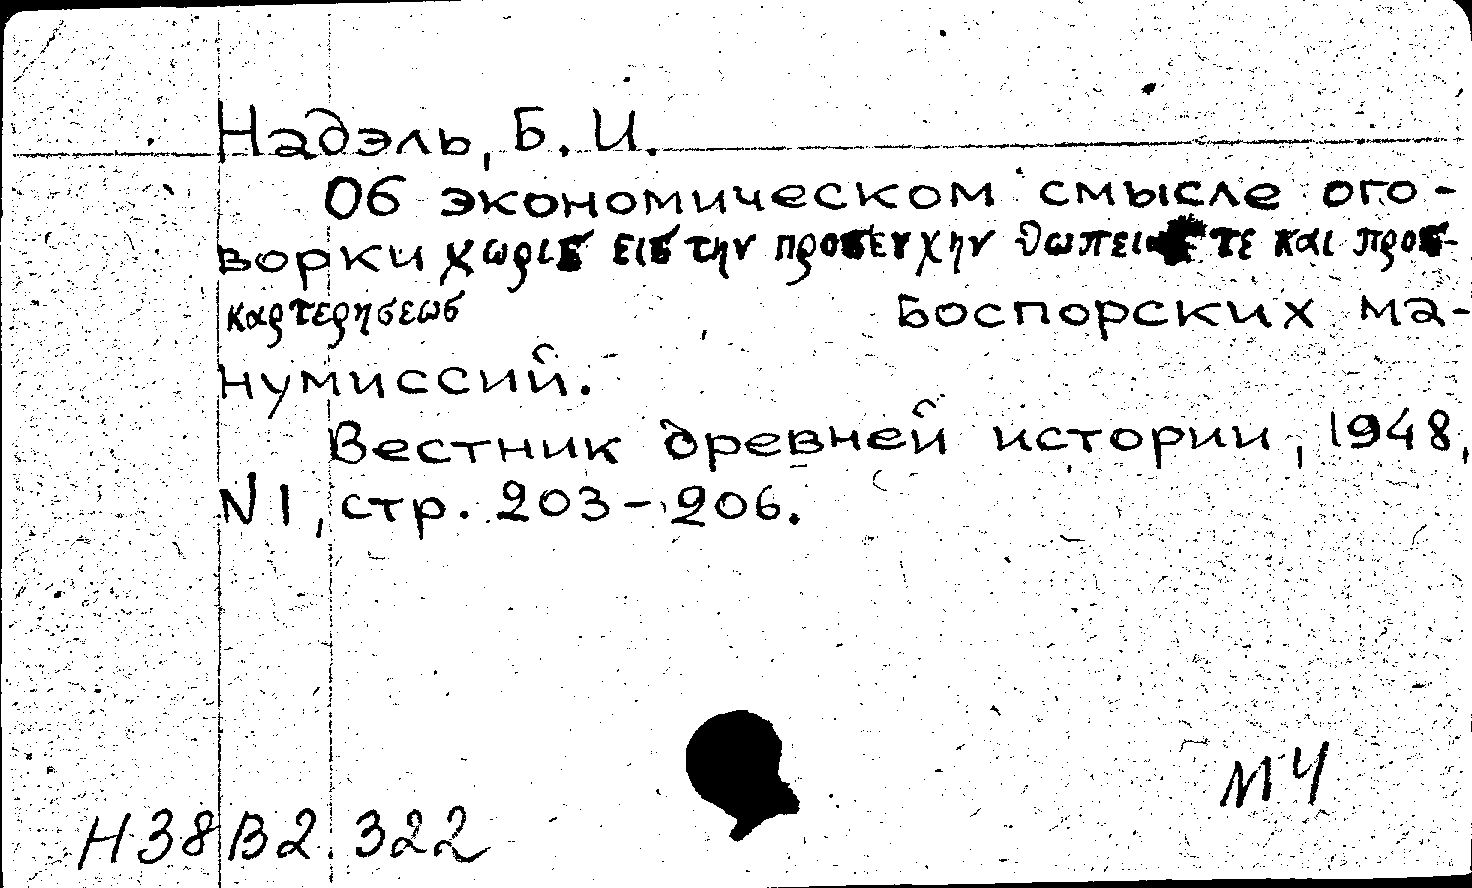 Надэль, Б. И.
Об экономическом смысле ого-
ворки χωρις εις την προσευχην θωπειας τε και προσ-
καρτερησεως Боспорских ма-
нумиссий.
Вестник древней истории, 1948,
N 1, стр. 203-206.
МЧ
Н38В2.322